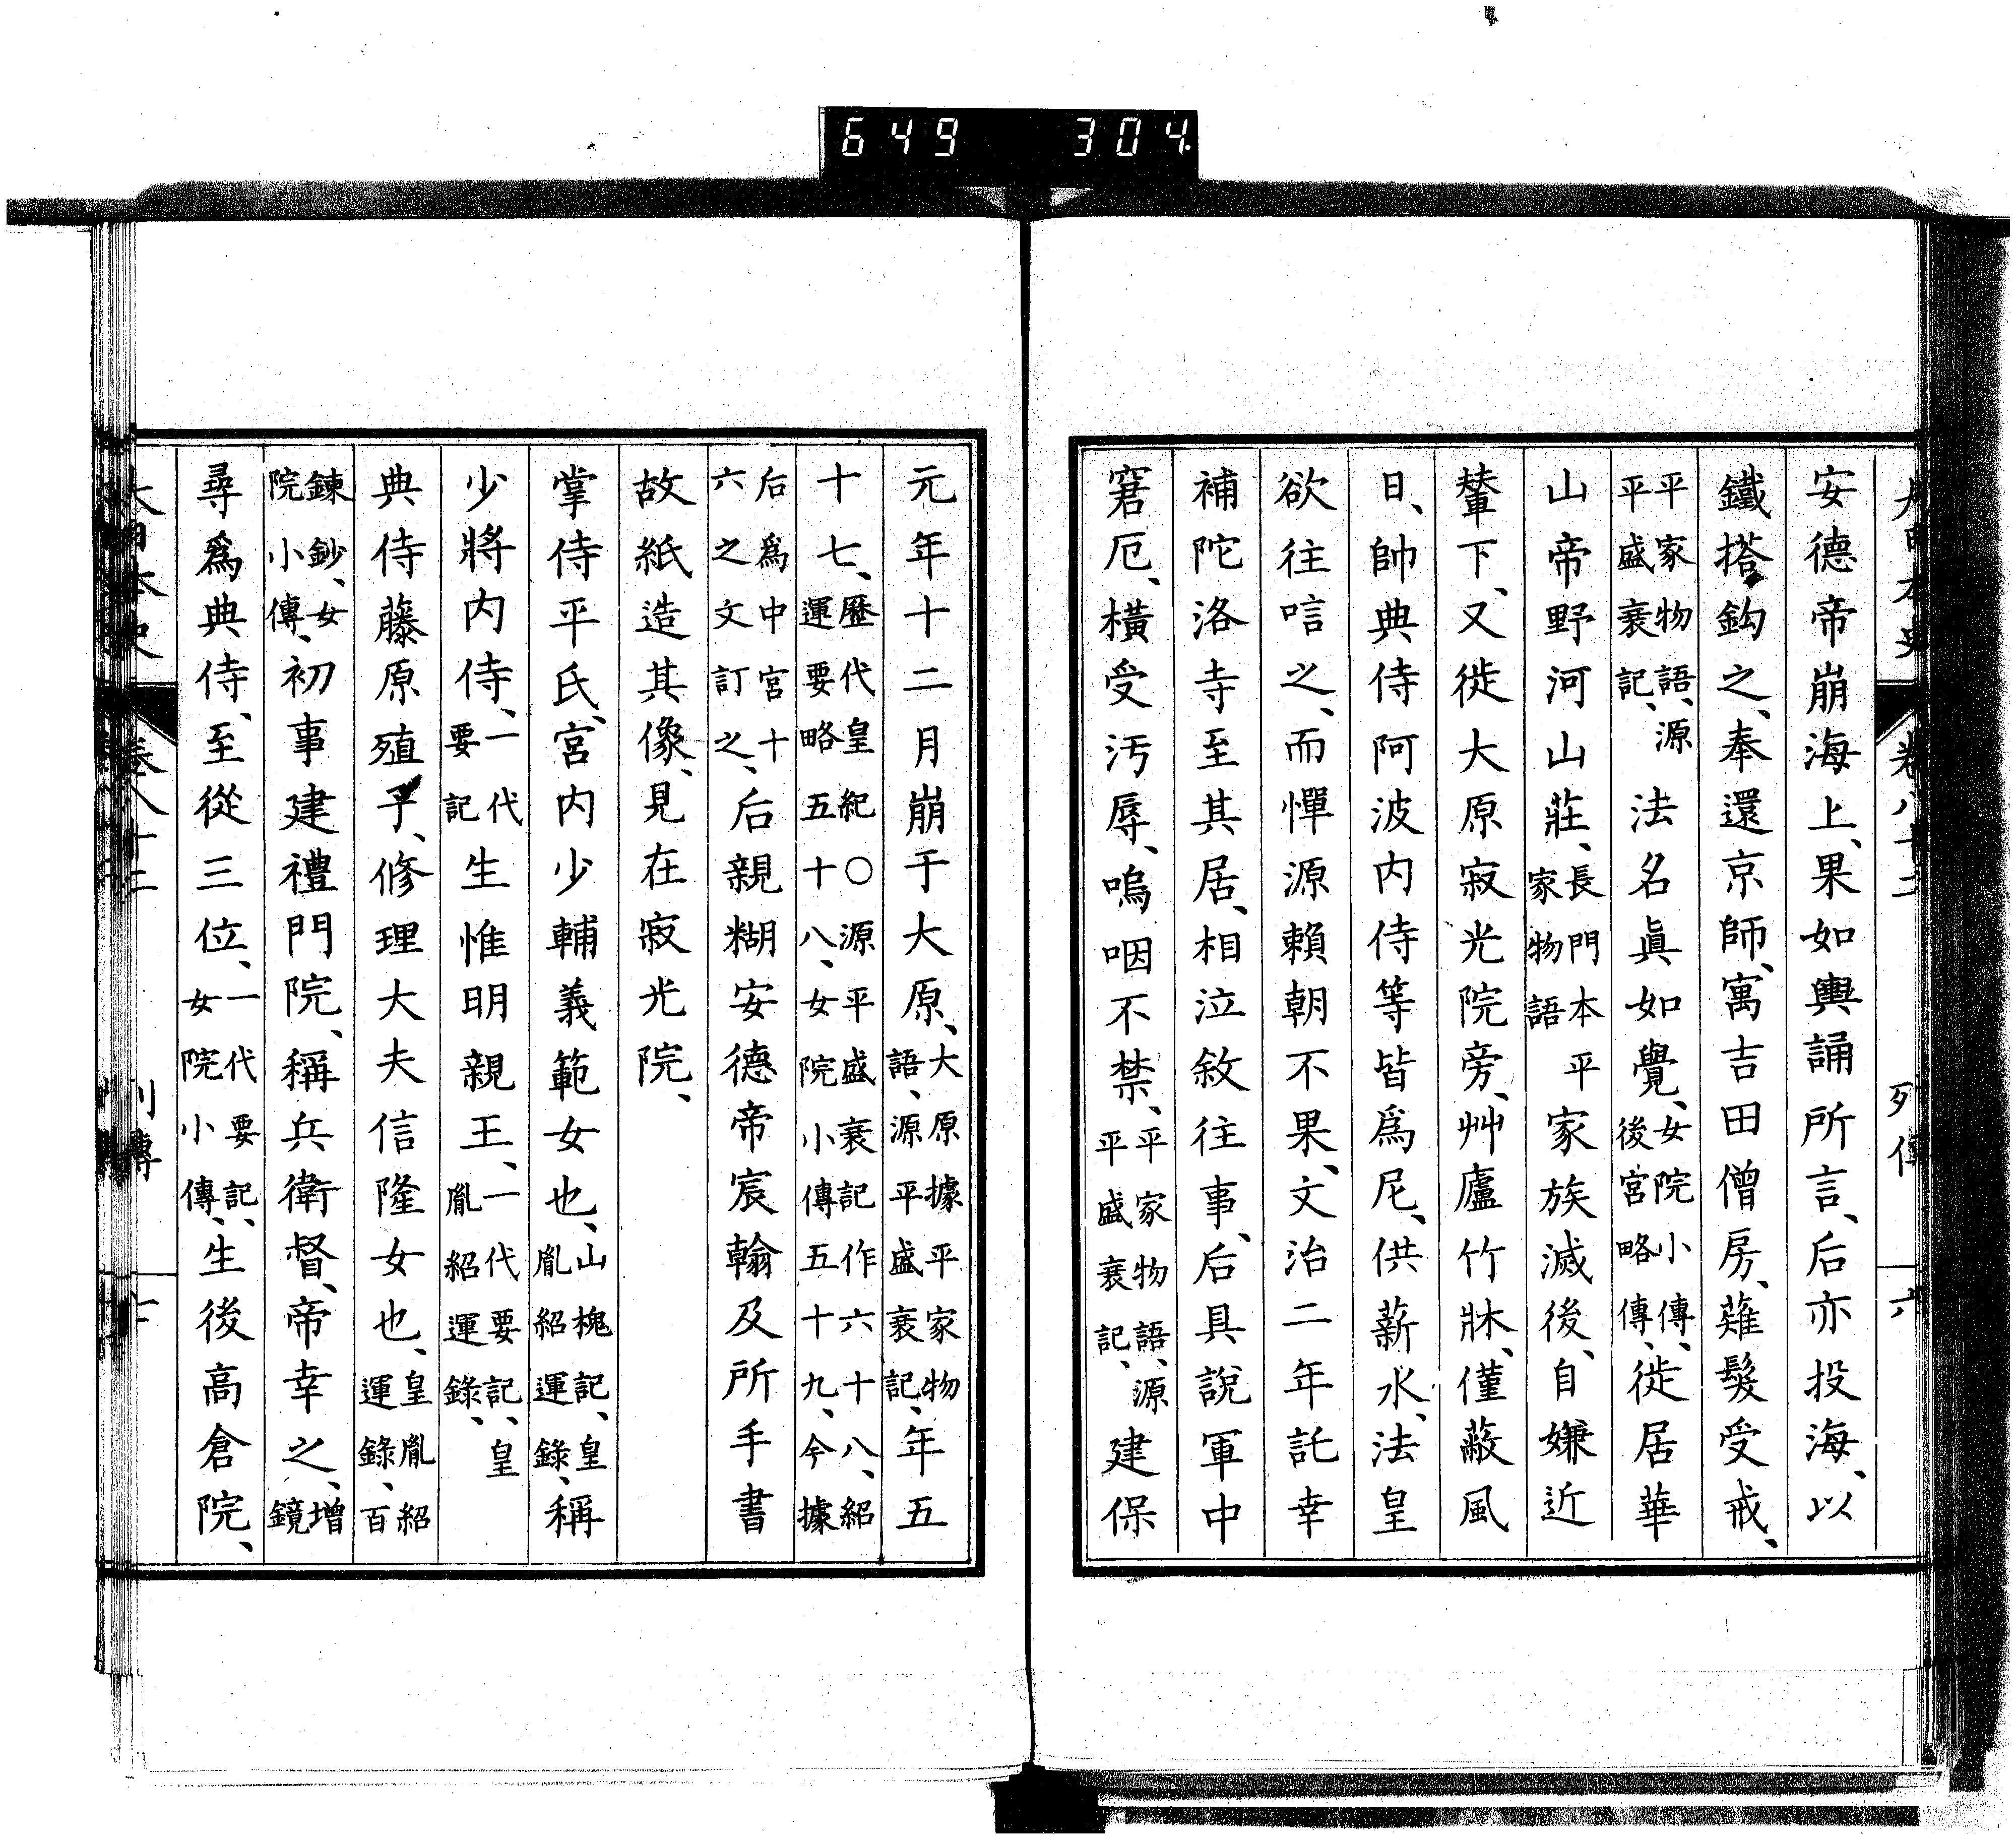 649 304
大日本史 卷八十二 列傳 六
安德帝崩海上、果如輿誦所言、后亦投海、以
鐵搭鈎之、奉還京師、寓吉田僧房、薙髮受戒、
平家物語、源平盛衰記、法名眞如覺、女院小傳、後宮略傳、徙居華
山帝野河山莊、長門本平家物語平家族滅後、自嫌近
輦下、又徙大原寂光院旁、艸廬竹牀、僅蔽風
日、帥典侍阿波内侍等皆爲尼、供薪水、法皇
欲往唁之、而憚源賴朝不果、文治二年託幸
補陀洛寺至其居、相泣敘往事、后具說軍中
窘厄、橫受汚辱、嗚咽不禁、平家物語、源平盛衰記、建保
元年十二月崩于大原、大原據平家物語、源平盛衰記、年五
十七、歷代皇紀〇源平盛衰記作六十八、紹運要略五十八、女院小傳五十九、今據
后爲中宮十六之文訂之、后親糊安德帝宸翰及所手書
故紙造其像、見在寂光院、
掌侍平氏、宮内少輔義範女也、山槐記、皇胤紹運錄、稱
少將内侍、一代要記生惟明親王、一代要記、皇胤紹運錄、
典侍藤原殖子、修理大夫信隆女也、皇胤紹運錄、百
鍊鈔、女院小傳、初事建禮門院、稱兵衛督、帝幸之、增鏡
尋爲典侍、至從三位、一代要記、女院小傳、生後高倉院、
大日本史 卷八十二 列傳 七